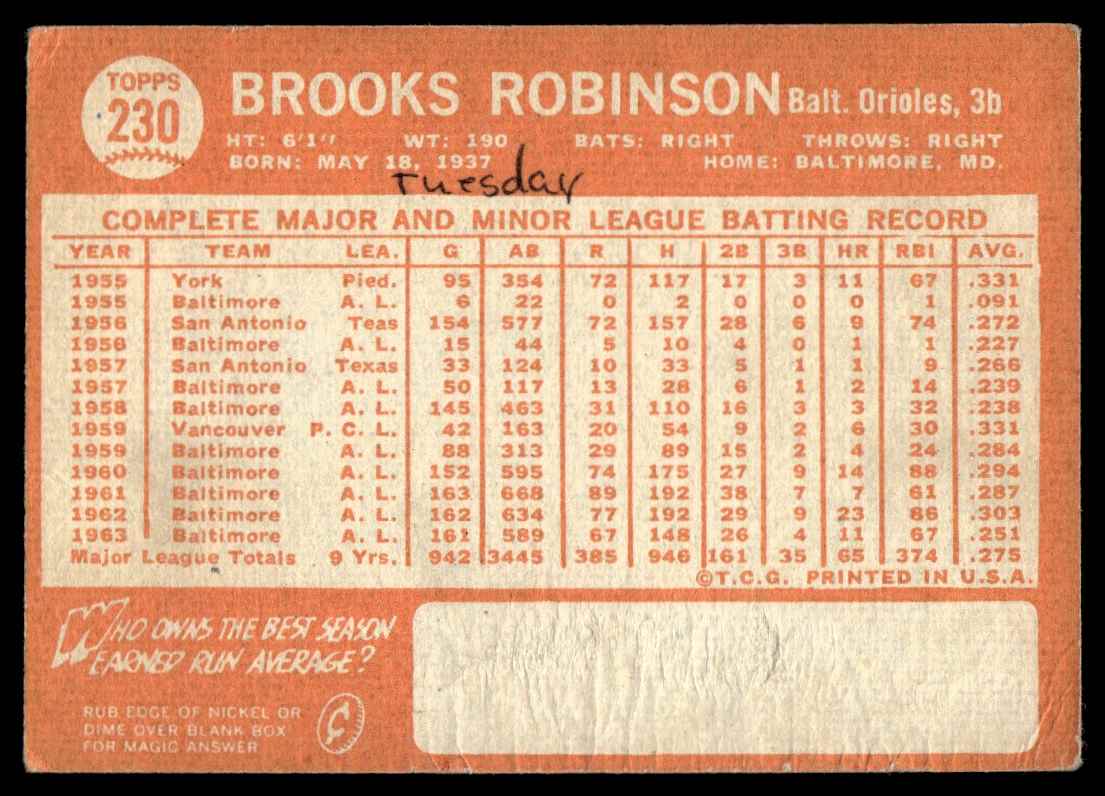 TOPPS
230
BROOKS ROBINSON Balt. Orioles, 3b
HT: 6'1" WT: 190 BATS: RIGHT THROWS: RIGHT
BORN: MAY 18, 1937 HOME: BALTIMORE, MD.
Tuesday
COMPLETE MAJOR AND MINOR LEAGUE BATTING RECORD
YEAR TEAM LEA. G AB R H 2B 3B HR RBI AVG.
1955 York Pied. 95 354 72 117 17 3 11 67 .331
1955 Baltimore A. L. 6 22 0 2 0 0 0 1 .091
1956 San Antonio Teas 154 577 72 157 28 6 9 74 .272
1956 Baltimore A. L. 15 44 5 10 4 0 1 1 .227
1957 San Antonio Texas 33 124 10 33 5 1 1 9 .266
1957 Baltimore A. L. 50 117 13 28 6 1 2 14 .239
1958 Baltimore A. L. 145 463 31 110 16 3 3 32 .238
1959 Vancouver P. C. L. 42 163 20 54 9 2 6 30 .331
1959 Baltimore A. L. 88 313 29 89 15 2 4 24 .284
1960 Baltimore A. L. 152 595 74 175 27 9 14 88 .294
1961 Baltimore A. L. 163 668 89 192 38 7 7 61 .287
1962 Baltimore A. L. 162 634 77 192 29 9 23 86 .303
1963 Baltimore A. L. 161 589 67 148 26 4 11 67 .251
Major League Totals 9 Yrs. 942 3445 385 946 161 35 65 374 .275
©T.C.G. PRINTED IN U.S.A.
WHO OWNS THE BEST SEASON
EARNED RUN AVERAGE?
RUB EDGE OF NICKEL OR
DIME OVER BLANK BOX
FOR MAGIC ANSWER